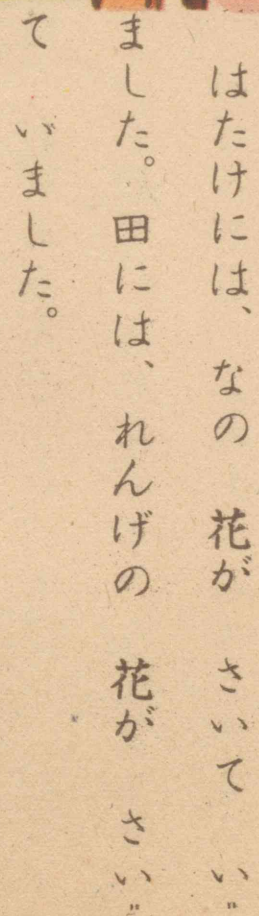 はたけには、なの 花が さいて い
ました。田には、れんげの 花が さい
て いました。